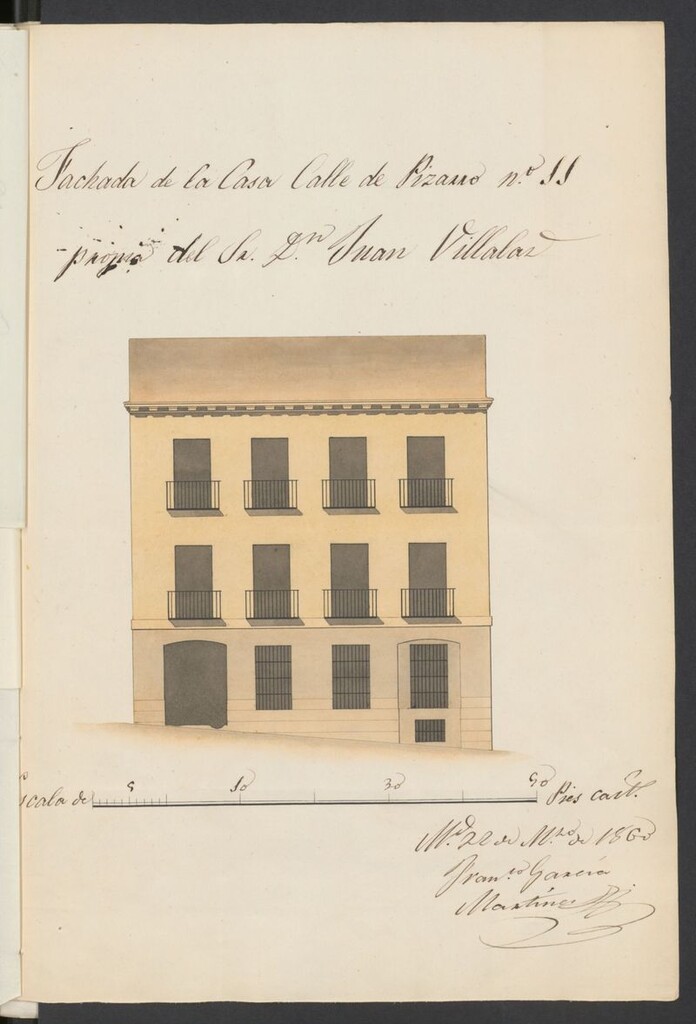 Fachada de la Casa Calle de Pizarro n.º 11
propia del Sr. D.n Juan Villalaz
Escala de 5 10 30 50 Pies cast.s
M.d 22 de M.zo de 1860
Fran.co García
Martínez